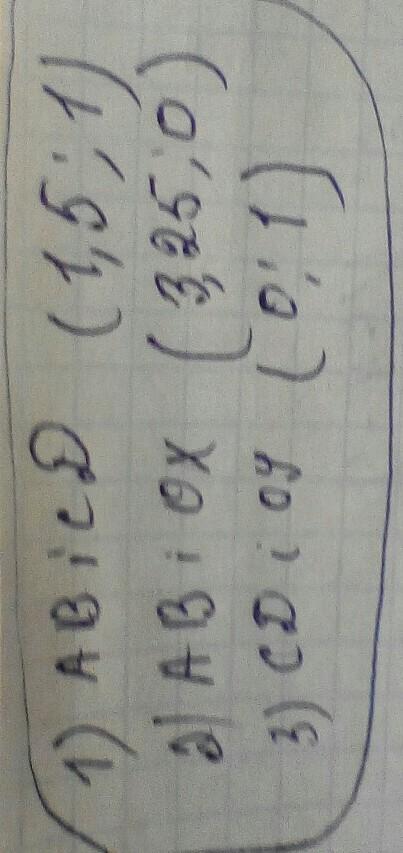 1) AB i CD (1,5; 1)
2) AB i OX (3,25; 0)
3) CD i OY (0; 1)